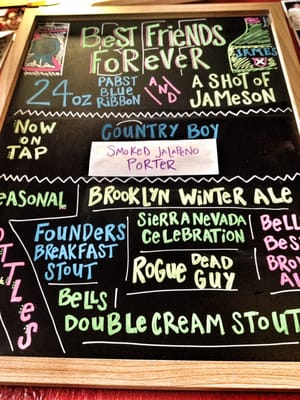 BEST FRIENDS
FOREVER
24oz PABST BLUE RIBBON AND A SHOT OF JAMESON
JAMES
NOW ON TAP
COUNTRY BOY
SMOKED JALAPENO
PORTER
EASONAL BROOKLYN WINTER ALE
TTLES
FOUNDERS
BREAKFAST
STOUT
SIERRA NEVADA
CELEBRATION
ROGUE DEAD
GUY
BELL
BES
BRO
BELLS
DOUBLE CREAM STOUT